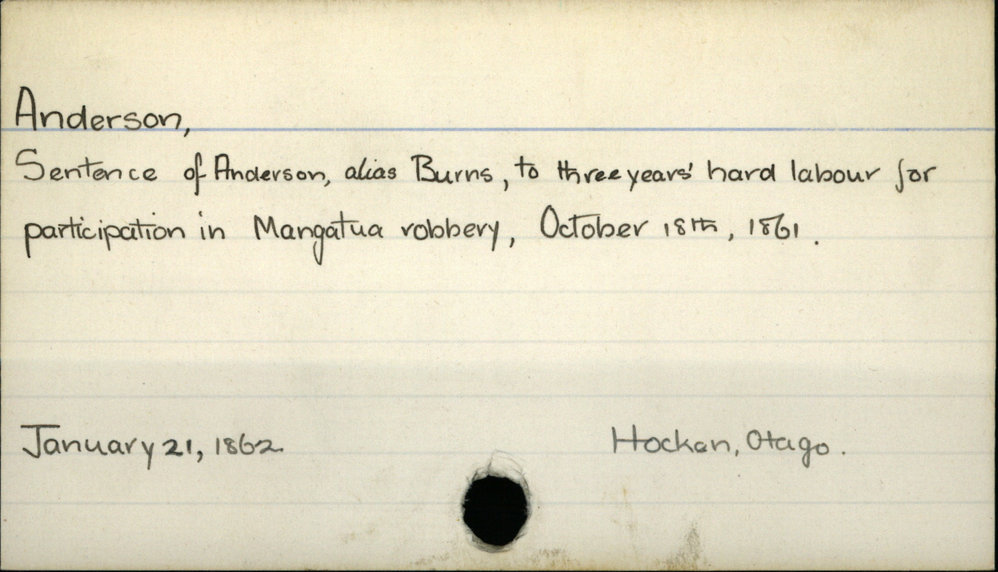 Anderson,
Sentence of Anderson, alias Burns, to three years' hard labour for
participation in Mangatua robbery, October 18th, 1861.
January 21, 1862.
Hocken, Otago.